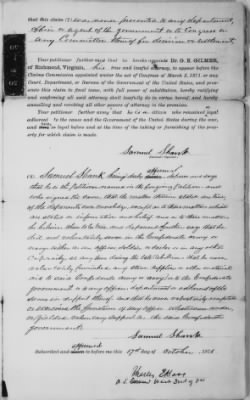 that this claim has never been presented to any department,
officer or agent of the government or to Congress or
any Committee thereof for decision or settlement.
Your petitioner further says that he hereby appoints Dr. O. H. GILMER,
of Richmond, Virginia, his true and lawful attorney, to appear before the
Claims Commission appointed under the act of Congress of March 3, 1871 or any
Court, Department, or Bureau of the Government of the United States, and prosecute
this claim to final issue, with full power of substitution, hereby ratifying
and confirming all said attorney shall lawfully do in virtue hereof; and hereby
annulling and revoking all other powers of attorney in the premises.
Your petitioner further says that he is a citizen who remained loyal
adherent to the cause and the Government of the United States during the war,
and was so loyal before and at the time of the taking or furnishing of the property
for which claim is made.
Samuel Shank
Samuel Shank being duly affirmed
that he is the Petitioner named in the foregoing Petition and
who signed the same; that the matters therein stated are true
of the deponent's own knowledge, except as to those matters which
are stated on information and belief and as to those matters
he believes them to be true and deponent further says that he
did not voluntarily serve in the Confederate army or
navy either as an officer, soldier, or sailor or in any other
capacity at any time during the late rebellion; that he never
voluntarily furnished any stores, supplies or other material
aid to said Confederate army or navy or to the Confederate
government or to any officer, department or adherent of the
same in support thereof, and that he never voluntarily accepted
or exercised the functions of any office whatsoever under,
or yielded voluntary support to the said Confederate
government.
Samuel Shank
affirmed
Subscribed and to before me this 17th day of October, 1871